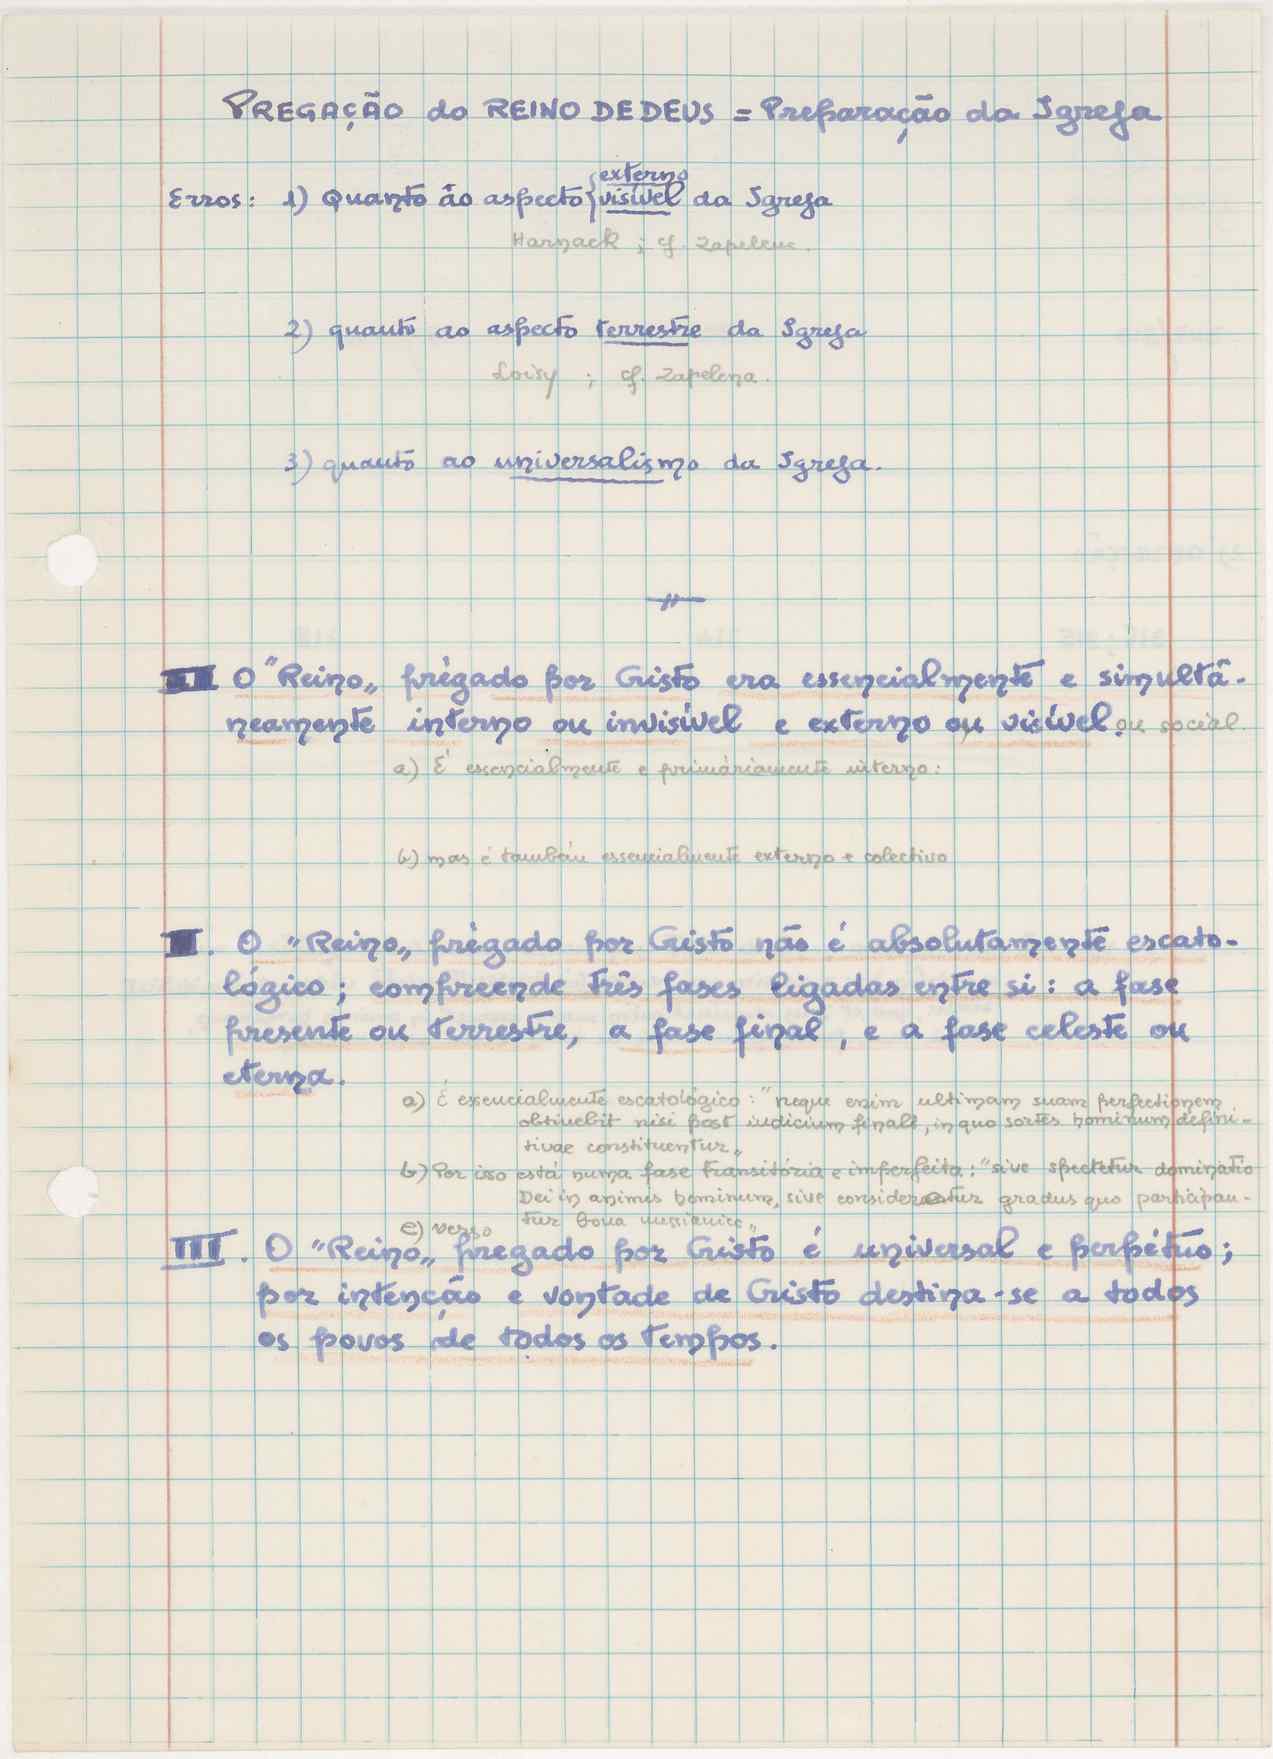 PREGAÇÃO do REINO DE DEUS = Preparação da Igreja
externo
Erros: 1) Quanto ào aspecto { visível da Igreja
Harnack ; cf. Zapelena.
2) quanto ao aspecto terrestre da Igreja
Loisy ; cf. Zapelena.
3) quanto ao universalismo da Igreja.
O "Reino„ prègado por Cristo era essencialmente e simultâ-
neamente interno ou invisível e externo ou visível. ou social.
a) É essencialmente e primàriamente interno:
b) mas é também essencialmente externo e colectivo
II. O "Reino„ prègado por Cristo não é absolutamente escato-
lógico; compreende três fases ligadas entre si: a fase
presente ou terrestre, a fase final, e a fase celeste ou
eterna.
a) É essencialmente escatológico: "neque enim ultimam suam perfectionem
obtinebit nisi post iudicium finale, in quo sortes hominum defini-
tivae constituentur„
b) Por isso está numa fase transitória e imperfeita: "sive spectetur dominatio
Dei in animis hominum, sive consideretur gradus quo participan-
tur bona messianica„
c) verso
III. O "Reino„ pregado por Cristo é universal e perpétuo;
por intenção e vontade de Cristo destina-se a todos
os povos de todos os tempos.